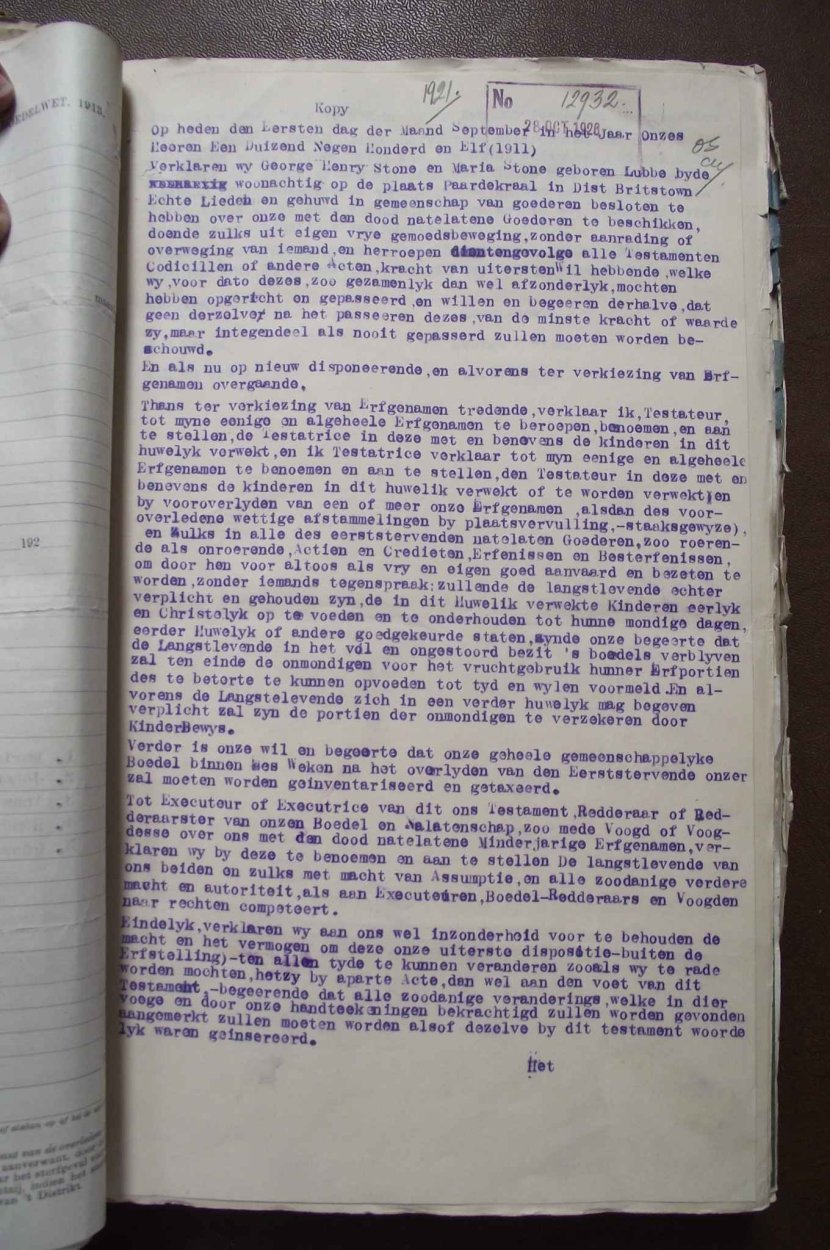 EDELWET, 1913.
192
1921
No 12932
28 OCT 1926
Kopy
Op heden den Eersten dag der Maand September in het Jaar Onzes
Heeren Een Duizend Negen Honderd en Elf(1911)
Verklaren wy George Henry Stone en Maria Stone geboren Lubbe byde
woonachtig op de plaats Paardekraal in Dist Britstown
Echte Lieden en gehuwd in gemeenschap van goederen besloten te
hebben over onze met den dood natelatene Goederen te beschikken,
doende zulks uit eigen vrye gemoedsbeweging,zonder aanrading of
overweging van iemand,en herroepen dientengevolge alle Testamenten
Codicillen of andere Acten,kracht van uitersten Wil hebbende,welke
wy,voor dato dezes,zoo gezamenlyk dan wel afzonderlyk,mochten
hebben opgericht en gepasseerd,en willen en begeeren derhalve,dat
geen derzelver na het passeeren dezes,van de minste kracht of waarde
zy,maar integendeel als nooit gepasserd zullen moeten worden be-
schouwd.
En als nu op nieuw disponeerende,en alvorens ter verkiezing van Erf-
genamen overgaande,
Thans ter verkiezing van Erfgenamen tredende,verklaar ik,Testateur,
tot myne eenige en algeheele Erfgenamen te beroepen,benoemen,en aan
te stellen,de Testatrice in deze met en benevens de kinderen in dit
huwelyk verwekt,en ik Testatrice verklaar tot myn eenige en algeheele
Erfgenamen te benoemen en aan te stellen,den Testateur in deze met en
benevens de kinderen in dit huwelik verwekt of te worden verwekt)en
by vooroverlyden van een of meer onze Erfgenamen ,alsdan des voor-
overledene wettige afstammelingen by plaatsvervulling,-staaksgewyze),
en Zulks in alle des eerststervenden natelaten Goederen,zoo roeren-
de als onroerende,Actien en Credieten,Erfenissen en Besterfenissen,
om door hen voor altoos als vry en eigen goed aanvaard en bezeten te
worden,zonder iemands tegenspraak;zullende de langstlevende echter
verplicht en gehouden zyn,de in dit Huwelik verwekte Kinderen eerlyk
en Christelyk op te voeden en te onderhouden tot hunne mondige dagen,
eerder Huwelyk of andere goedgekeurde staten,zynde onze begeerte dat
de Langstlevende in het vol en ongestoord bezit 's boedels verblyven
zal ten einde de onmondigen voor het vruchtgebruik hunner Erfportien
des te beterte te kunnen opvoeden tot tyd en wylen voormeld.En al-
vorens de Langstelevende zich in een verder huwelyk mag begeven
verplicht zal zyn de portien der onmondigen te verzekeren door
KinderBewys.
Verder is onze wil en begeerte dat onze geheele gemeenschappelyke
Boedel binnen Zes Weken na het overlyden van den Eerststervende onzer
zal moeten worden geinventariseerd en getaxeerd.
Tot Executeur of Executrice van dit ons Testament,Redderaar of Red-
deraarster van onzen Boedel en Nalatenschap,zoo mede Voogd of Voog-
desse over ons met den dood natelatene Minderjarige Erfgenamen,ver-
klaren wy by deze te benoemen en aan te stellen De langstlevende van
ons beiden en zulks met macht van Assumptie,en alle zoodanige verdere
macht en autoriteit,als aan Executeuren,Boedel-Redderaars en Voogden
naar rechten competeert.
Eindelyk,verklaren wy aan ons wel inzonderheid voor te behouden de
macht en het vermogen om deze onze uiterste dispositie-buiten de
Erfstelling)-ten allen tyde te kunnen veranderen zooals wy te rade
worden mochten,hetzy by aparte Acte,dan wel aan den voet van dit
Testament,-begeerende dat alle zoodanige veranderings,welke in dier
voege en door onze handteekeningen bekrachtigd zullen worden gevonden
aangemerkt zullen moeten worden alsof dezelve by dit testament woorde
lyk waren geinsereerd.
Het